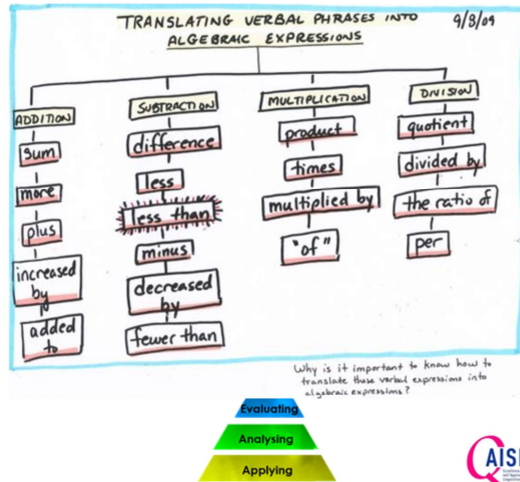 TRANSLATING VERBAL PHRASES INTO
ALGEBRAIC EXPRESSIONS
9/8/09
ADDITION
sum
more
plus
increased
by
added
to
SUBTRACTION
difference
less
less than
minus
decreased
by
fewer than
MULTIPLICATION
product
times
multiplied by
"of"
DIVISION
quotient
divided by
the ratio of
per
Why is it important to know how to
translate these verbal expressions into
algebraic expressions?
Evaluating
Analysing
Applying